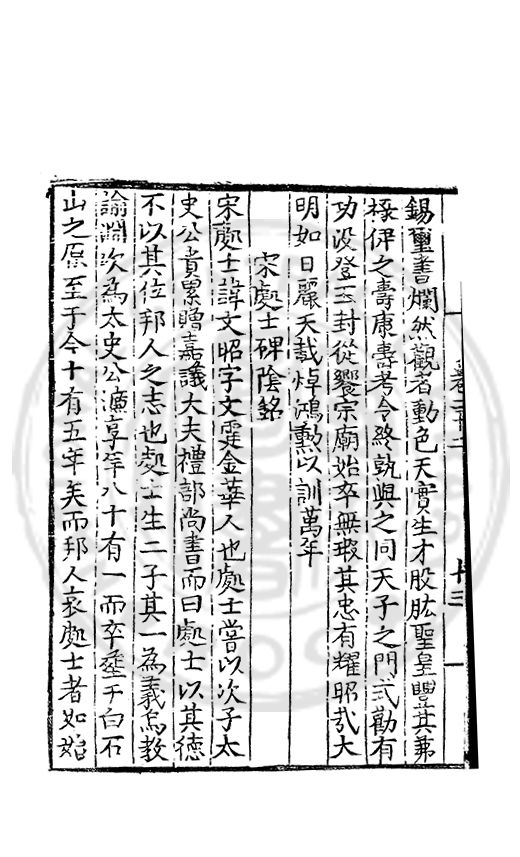 錫璽書爛然觀者動色天實生才股肱聖皇豐其茀
祿俾之壽康壽考令終孰與之同天子之門式勸有
功沒登玉封從饗宗廟始卒無瑕其忠有耀昭哉大
明如日麗天載焯鴻勳以訓萬年
宋處士碑陰銘
宋處士諱文昭字文霆金華人也處士嘗以次子太
史公貴累贈嘉議大夫禮部尚書而曰處士以其德
不以其位邦人之志也處士生二子其一為義烏教
諭淵次為太史公濂享年八十有一而卒塟于白石
山之原至于今十有五年矣而邦人哀處士者如始
十三